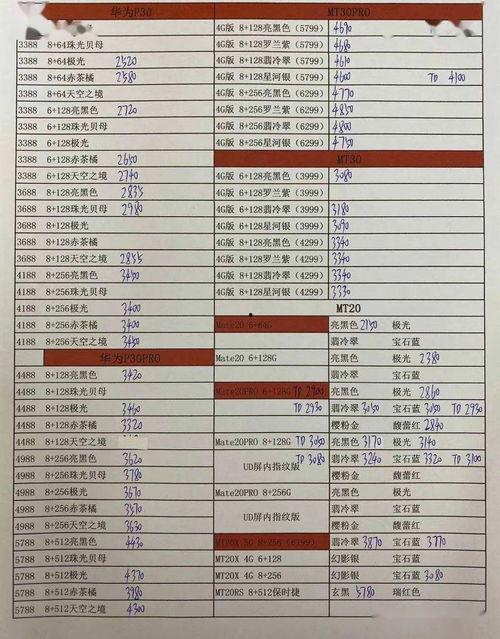 华为P30 MT30PRO
4G版 8+128亮黑色(5799) 4690
3388 8+64珠光贝母 4G版 8+128罗兰紫(5799) 4680
3388 8+64极光 2520 4G版 8+128翡冷翠(5799) 4610
3388 8+64赤茶橘 2580 4G版 8+128星河银(5799) 4600 TD 4100
3388 8+64天空之境 4G版 8+256亮黑色(6299) 4770
3388 6+128亮黑色 2720 4G版 8+256罗兰紫(6299) 4850
3388 6+128珠光贝母 4G版 8+256翡冷翠(6299) 4800
3388 6+128极光 4G版 8+256星河银(6299) 4750
3388 6+128赤茶橘 2650 MT30
3388 6+128天空之境 2740 4G版 6+128亮黑色(3999) 3080
3688 8+128亮黑色 2835 4G版 6+128罗兰紫(3999)
3688 8+128珠光贝母 2980 4G版 6+128翡冷翠(3999) 3180
3688 8+128极光 4G版 6+128星河银(3999) 3090
3688 8+128赤茶橘 4G版 8+128亮黑色(4299) 3340
3688 8+128天空之境 2855 4G版 8+128罗兰紫(4299) 3340
4188 8+256亮黑色 3450 4G版 8+128翡冷翠(4299) 3340
4188 8+256珠光贝母 4G版 8+128星河银(4299) 3330
4188 8+256极光 3400 MT20
4188 8+256赤茶橘 3400 Mate20 6+64G 亮黑色 2150 极光
4188 8+256天空之境 3450 翡冷翠 宝石蓝
华为P30PRO Mate20 6+128G 亮黑色 极光 2380
4488 8+128亮黑色 3420 翡冷翠 宝石蓝
4488 8+128珠光贝母 Mate20PRO 6+128G TD 2900 亮黑色 极光 2860
4488 8+128极光 3460 TD 2930 翡冷翠 3050 宝石蓝 3050 TD 2930
4488 8+128赤茶橘 3320 樱粉金 馥蕾红 2840
4488 8+128天空之境 Mate20PRO 8+128G TD 3050 亮黑色 3170 极光 3140
4988 8+256亮黑色 3620 UD屏内指纹版 TD 3080 翡冷翠 3240 宝石蓝 3320 TD 3100
4988 8+256珠光贝母 3780 樱粉金 馥蕾红
4988 8+256极光 3670 Mate20PRO 8+256G 亮黑色 极光
4988 8+256赤茶橘 3570 UD屏内指纹版 翡冷翠 宝石蓝
4988 8+256天空之境 3630 樱粉金 馥蕾红
5788 8+512亮黑色 4430 MT20X 5G 8+256 (6399) 翡冷翠 3870 宝石蓝 3770
5788 8+512珠光贝母 MT20X 4G 6+128 幻影银 宝石蓝
5788 8+512极光 4370 MT20X 4G 8+256 幻影银 宝石蓝 3080
5788 8+512赤茶橘 3980 MT20RS 8+512保时捷 玄黑 5780 瑞红色
5788 8+512天空之境 4300